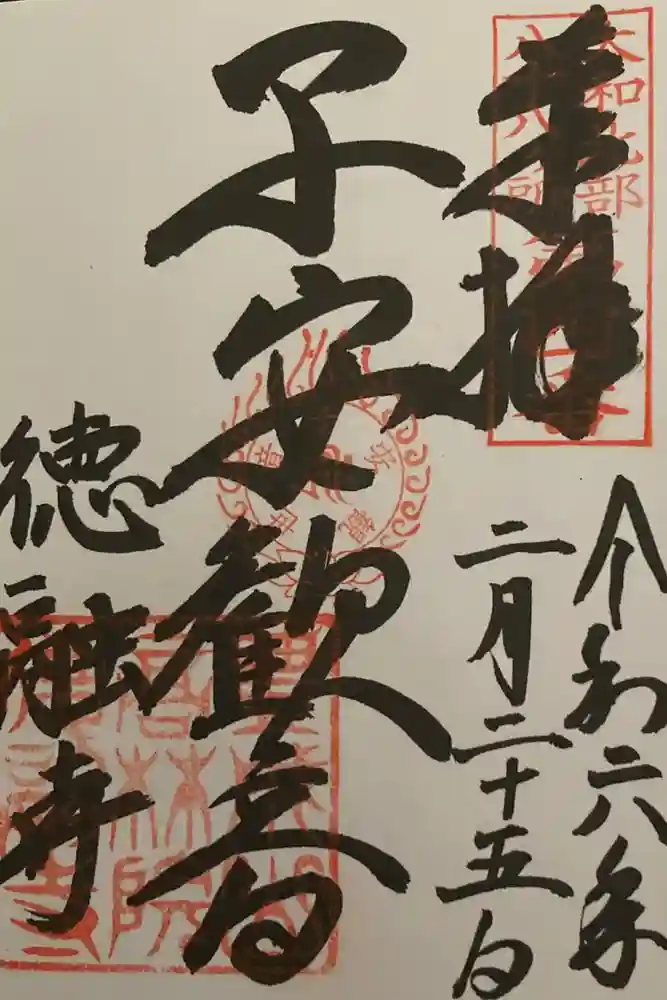 大和北部
八十八所
奉拝
令和六年
二月二十五日
子安観音
徳融寺